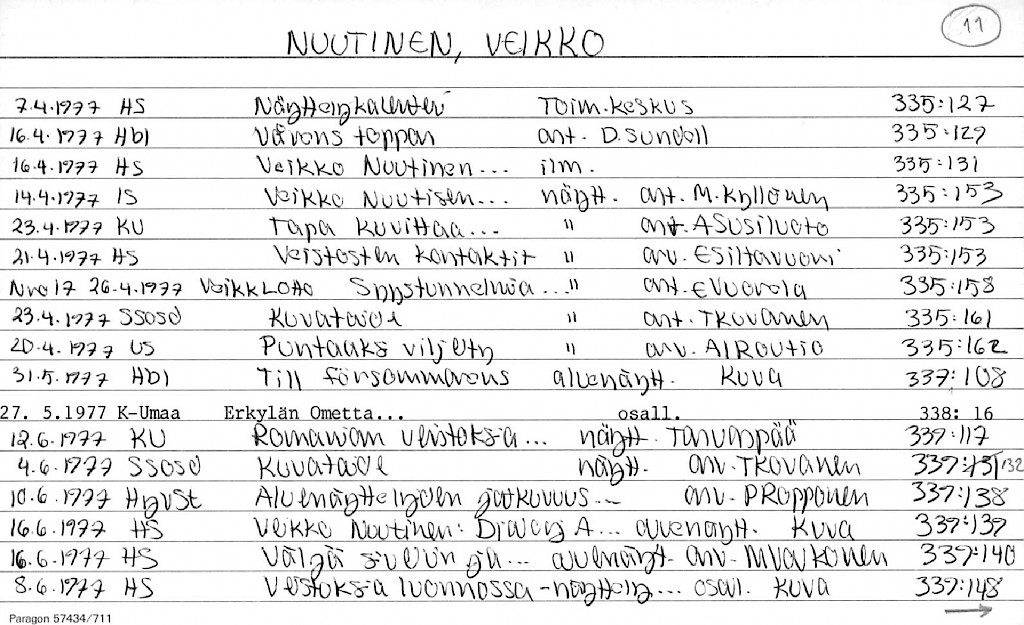 11
NUUTINEN, VEIKKO
7.4.1977 HS Näyttelykalenteri Toim.keskus 335:127
16.4.1977 Hbl Vårens toppen ant. D.Sundell 335:129
16.4.1977 HS Veikko Nuutinen... ilm. 335:131
14.4.1977 IS Veikko Nuutisen... näytt. arv. M.Kyllönen 335:153
23.4.1977 KU Tapa kuvittaa... " arv. A Susiluoto 335:153
21.4.1977 HS Veistosten kontaktit " arv. E Siltavuori 335:153
Nro 17 26.4.1977 VeikkLotto Syystunnelmia... " arv. E Vuorela 335:158
23.4.1977 SSosd Kuvataide " arv. T Kovanen 335:161
20.4.1977 US Puntaaks viljelty " arv. A I Routio 335:162
31.5.1977 Hbl Till försommarens aluenäytt. kuva 337:108
27. 5.1977 K-Umaa Erkylän Ometta... osall. 338: 16
12.6.1977 KU Romanian veistoksia... näytt. Tanninpää 339:117
4.6.1977 SSosd Kuvataide näytt. arv. T Kovanen 339:131 132
10.6.1977 HgvSt Aluenäyttelyiden jatkuvuus... arv. P Ropponen 339:138
16.6.1977 HS Veikko Nuutinen: Dialog A... aluenäytt. kuva 339:139
16.6.1977 HS Väljä s-elvin ja... aluenäytt. arv. M Valkonen 339:140
8.6.1977 HS Veistoksia luonnossa-näyttely... osall. kuva 339:148
Paragon 57434/711